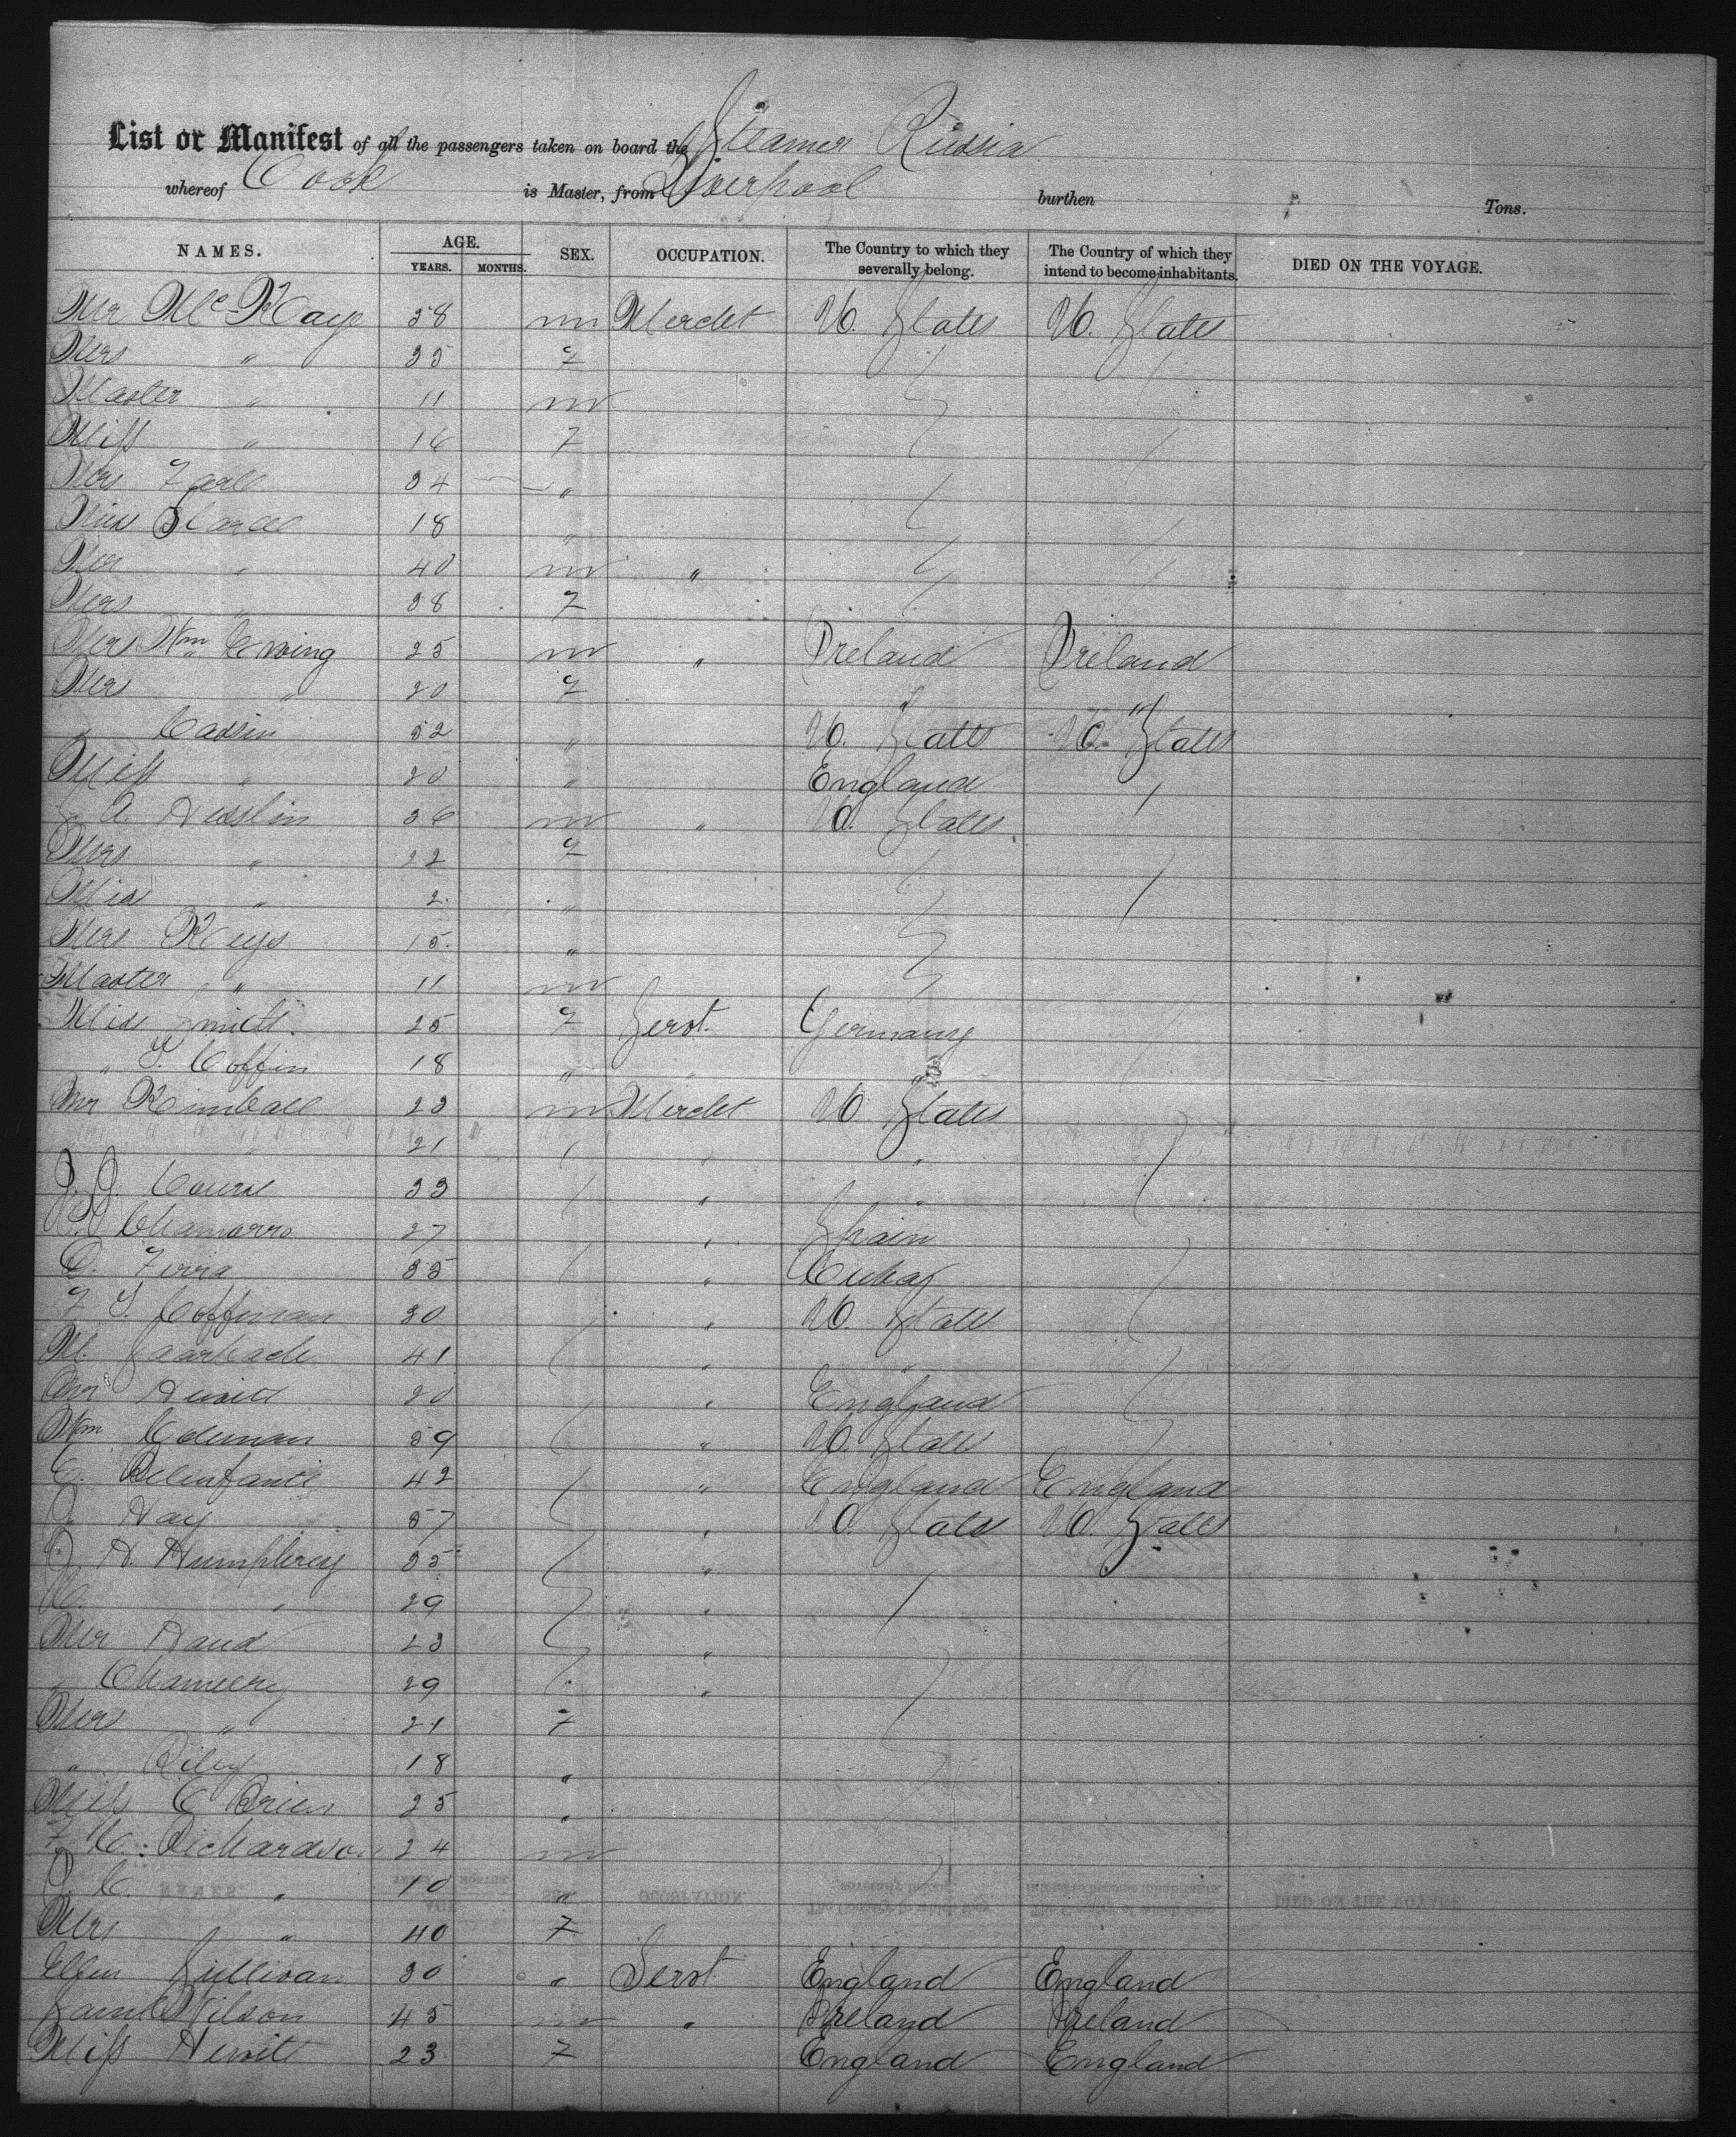 List or Manifest of all the passengers taken on board the Steamer Russia
whereof Cook is Master, from Liverpool burthen Tons.
NAMES. AGE. YEARS. MONTHS. SEX. OCCUPATION. The Country to which they severally belong. The Country of which they intend to become inhabitants. DIED ON THE VOYAGE.
Mr McKaye 38 m Mercht U. States U. States
Mrs " 35 f
Master " 11 m
Miss " 16 f
Mrs 34 "
Miss 18 "
Mr " 40 m "
Mrs " 38 f
Mrs Wm Ewing 25 m " Ireland Ireland
Mrs " 20 f " "
" Cassin 52 " U. States U. States
Miss " 20 " England
A. Hesslin 36 m " U. States
Mrs " 22 f
Miss " 2 "
Mrs Keys 15 "
Master " 11 m
Miss Smith 25 f Servt. Germany
" T. Coffin 18 " "
Mr Kimball 23 m Mercht U. States
" 21 " "
J. J. 33 " "
Chamorro 27 " Spain
D. Ferra 35 " Cuba
F T. Coffinan 30 " U. States
M. Saarbach 41 " "
Mr Hewitt 20 " England
Wm Coleman 59 " U. States
E. Belinfante 42 " England England
J. Hay 57 " U. States U. States
J. H. Humphrey 35 "
" 29 "
Mr Hand 23 "
" 29 "
Mrs " 21 f
" Riley 18 "
Miss O Brien 25 "
F. C. Richardson 24 m
J. C. " 10 "
Mrs " 40 f
Ellen Sullivan 30 " Servt England England
Saml Wilson 45 m " Ireland Ireland
Miss Hewitt 23 f England England